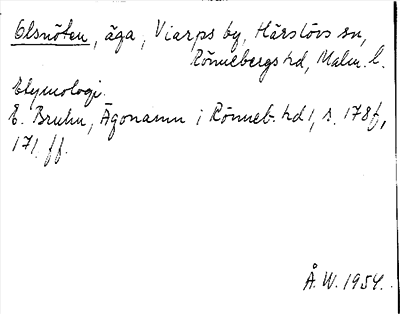 Olsnöten, äga, Viarps by, Härslövs sn,
Rönnebergs hd, Malm. l.
Etymologi.
E. Bruhn, Ägonamn i Rönneb. hd 1, s. 178 f,
171. ff.
Å. W. 1954.